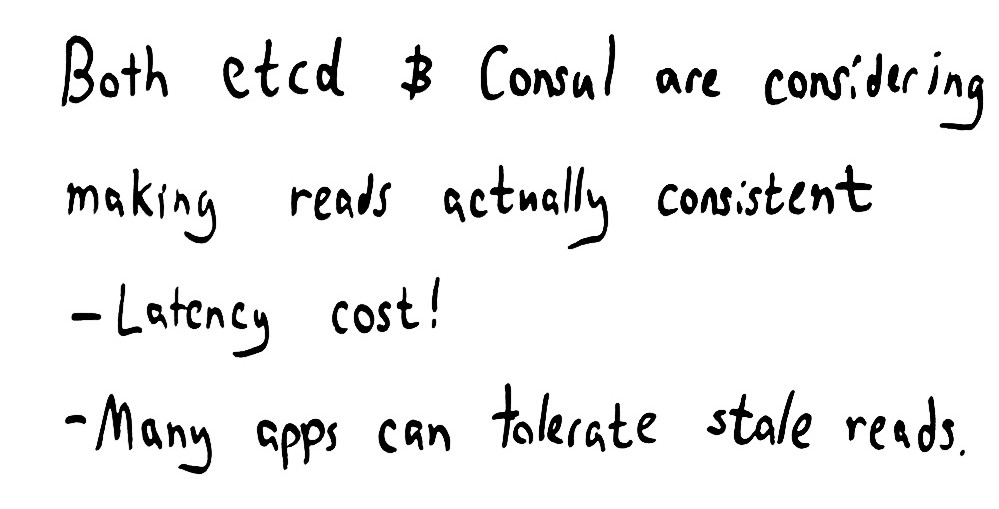 Both etcd & Consul are considering
making reads actually consistent
- Latency cost!
- Many apps can tolerate stale reads.